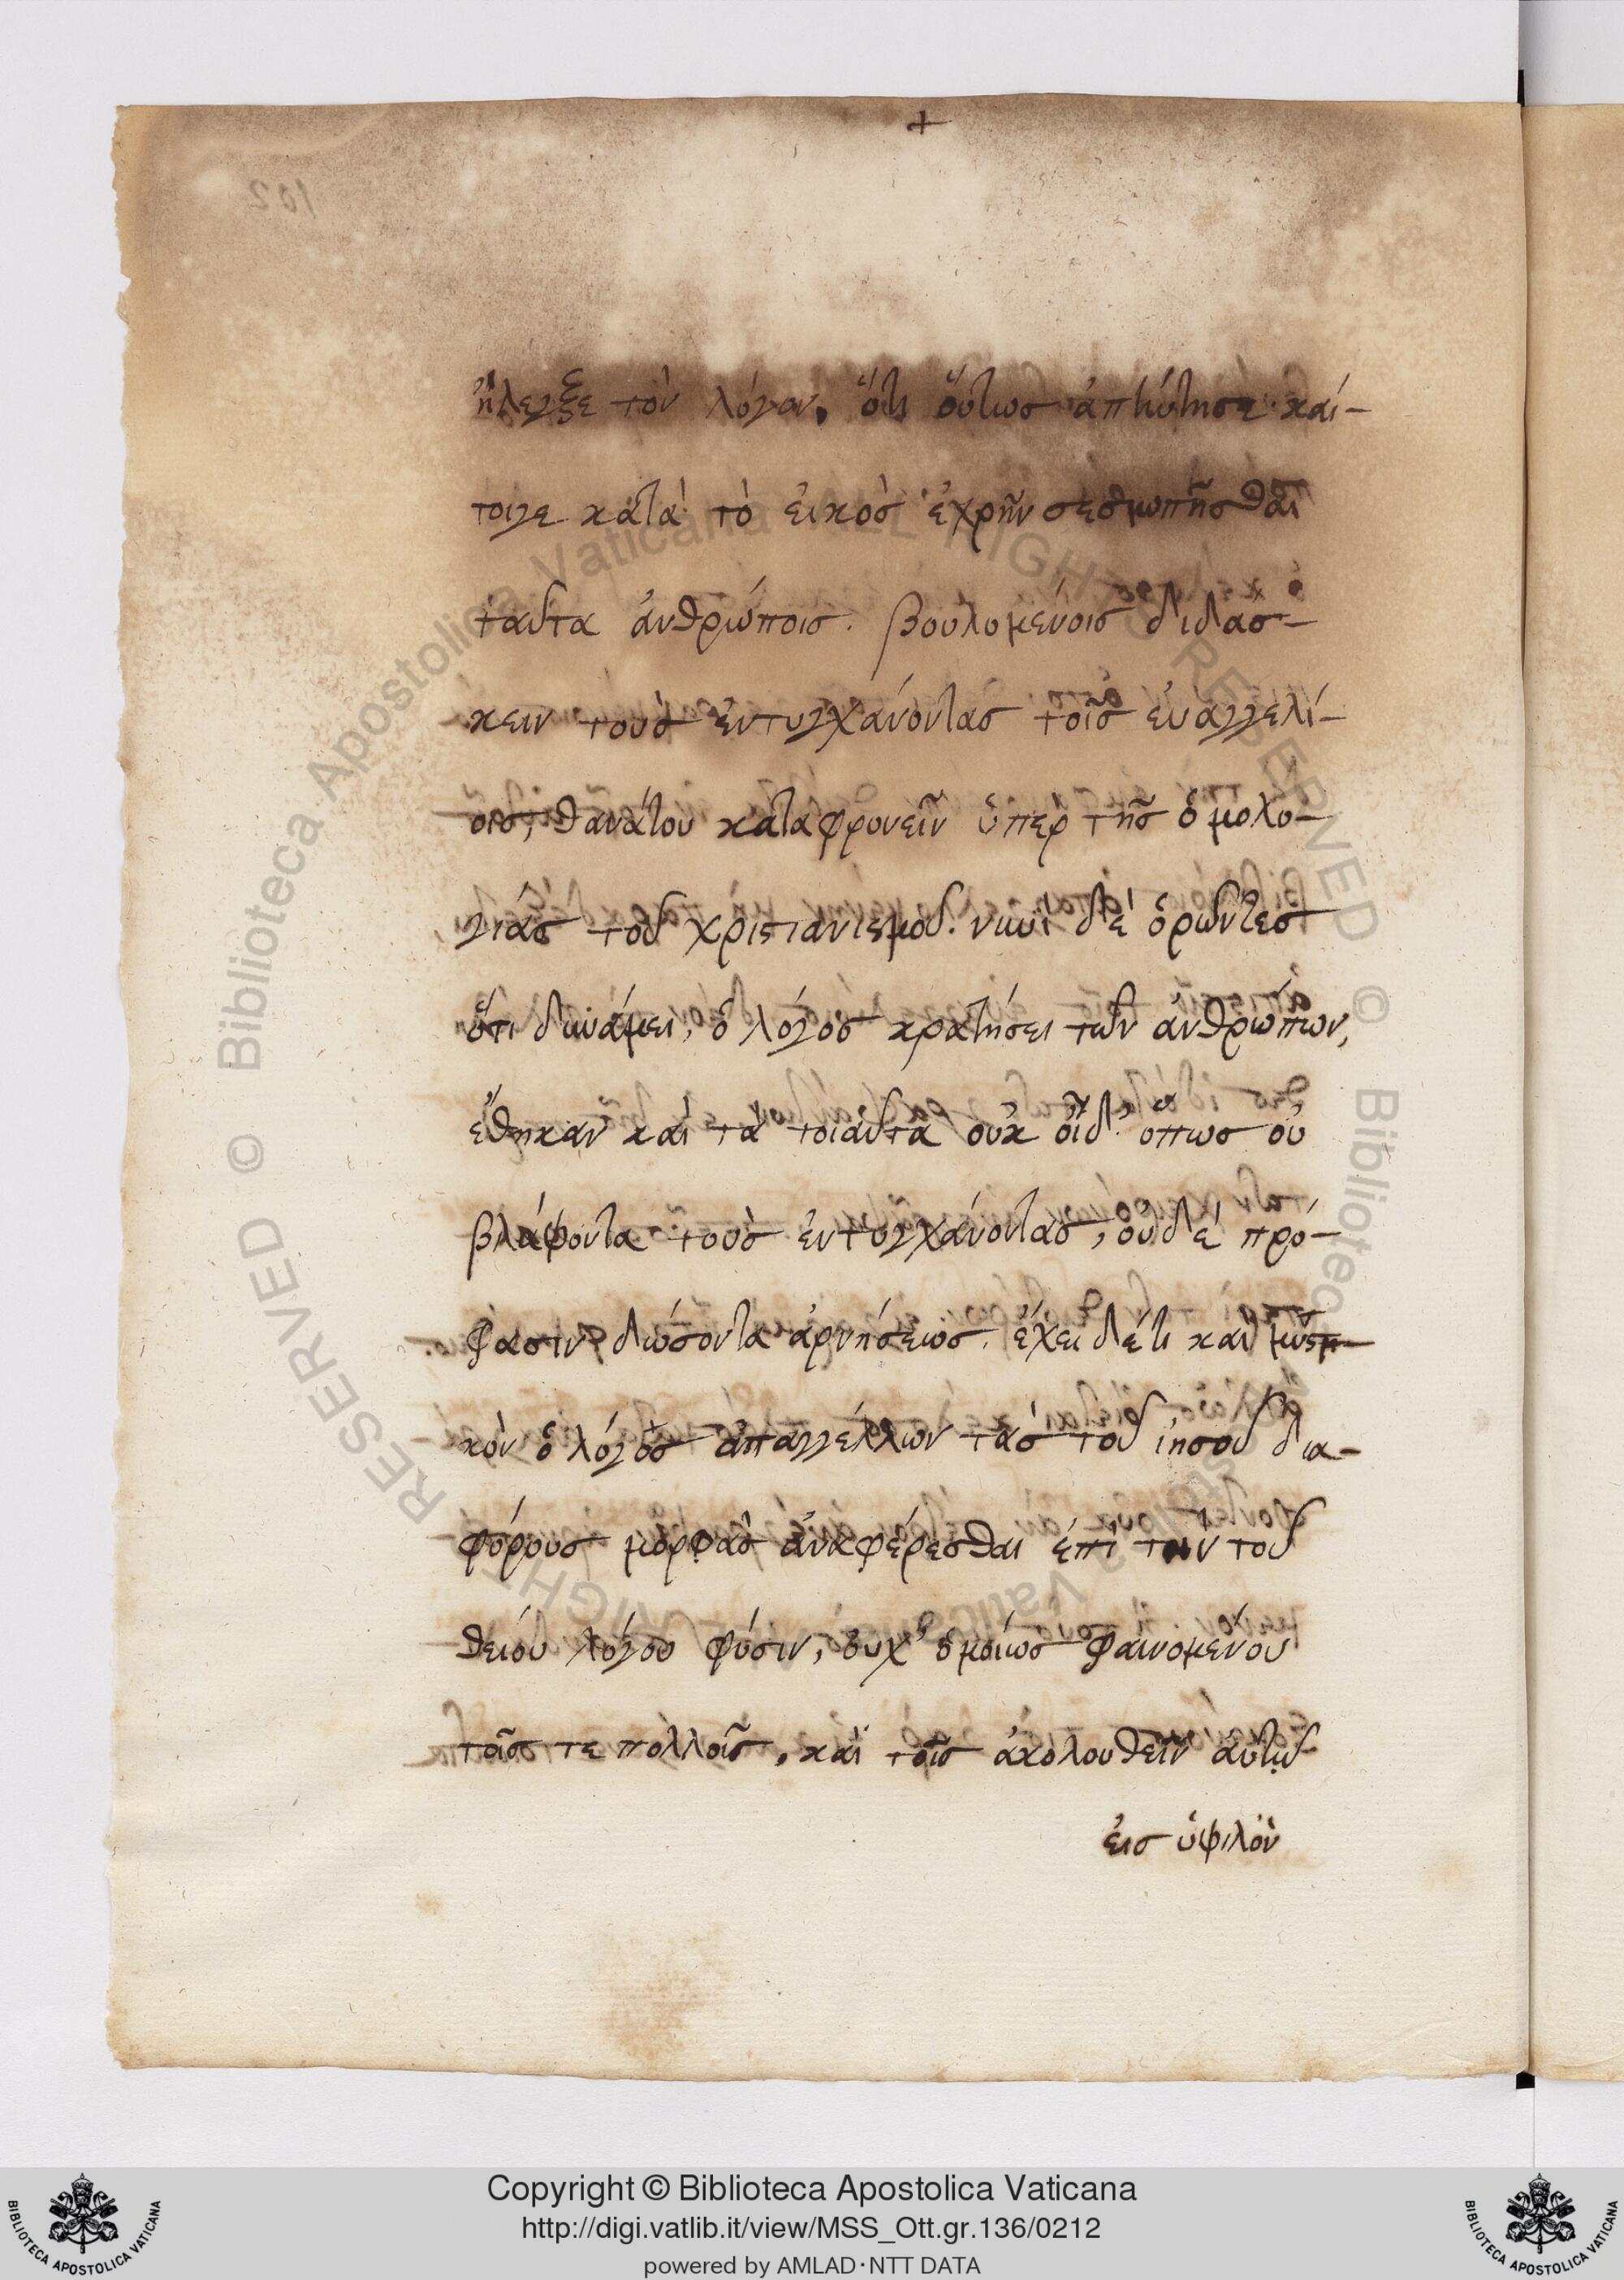 +
ἤλεγξε τὸν λόγον, ὅτι οὕτως ἀπηύτησε καί-
τοιγε κατὰ τὸ εἰκὸς ἐχρῆν σεσιωπῆσθαι
ταῦτα ἀνθρώποις. βουλομένοις διδάσ-
κειν τοὺς ἐντυγχάνοντας τοῖς εὐαγγελί-
οις, θανάτου καταφρονεῖν ὑπὲρ τῆς ὁμολο-
γίας τοῦ χριστιανισμοῦ. νυνὶ δὲ ὁρῶντες
ὅτι δυνάμει, ὁ λόγος κρατήσει τῶν ἀνθρώπων,
ἔθηκαν καὶ τὰ τοιαῦτα οὐκ οἶδ' ὅπως οὐ
βλάψοντα τοὺς ἐντυγχάνοντας, οὐδὲ πρό-
φασιν δώσοντα ἀρνήσεως. ἔχει δέ τι καὶ μυστι-
κὸν ὁ λόγος ἀπαγγέλλων τὰς τοῦ ἰησοῦ δια-
φόρους μορφὰς ἀναφέρεσθαι ἐπὶ τὴν τοῦ
θείου λόγου φύσιν, οὐχ' ὁμοίως φαινομένου
τοῖς τε πολλοῖς, καὶ τοῖς ἀκολουθεῖν αὐτῷ
εἰς ὑψιλὸν
102
Biblioteca Apostolica Vaticana ALL RIGHTS RESERVED © Biblioteca Apostolica Vaticana ALL RIGHTS RESERVED ©
Copyright © Biblioteca Apostolica Vaticana
http://digi.vatlib.it/view/MSS_Ott.gr.136/0212
powered by AMLAD･NTT DATA
BIBLIOTECA APOSTOLICA VATICANA
BIBLIOTECA APOSTOLICA VATICANA